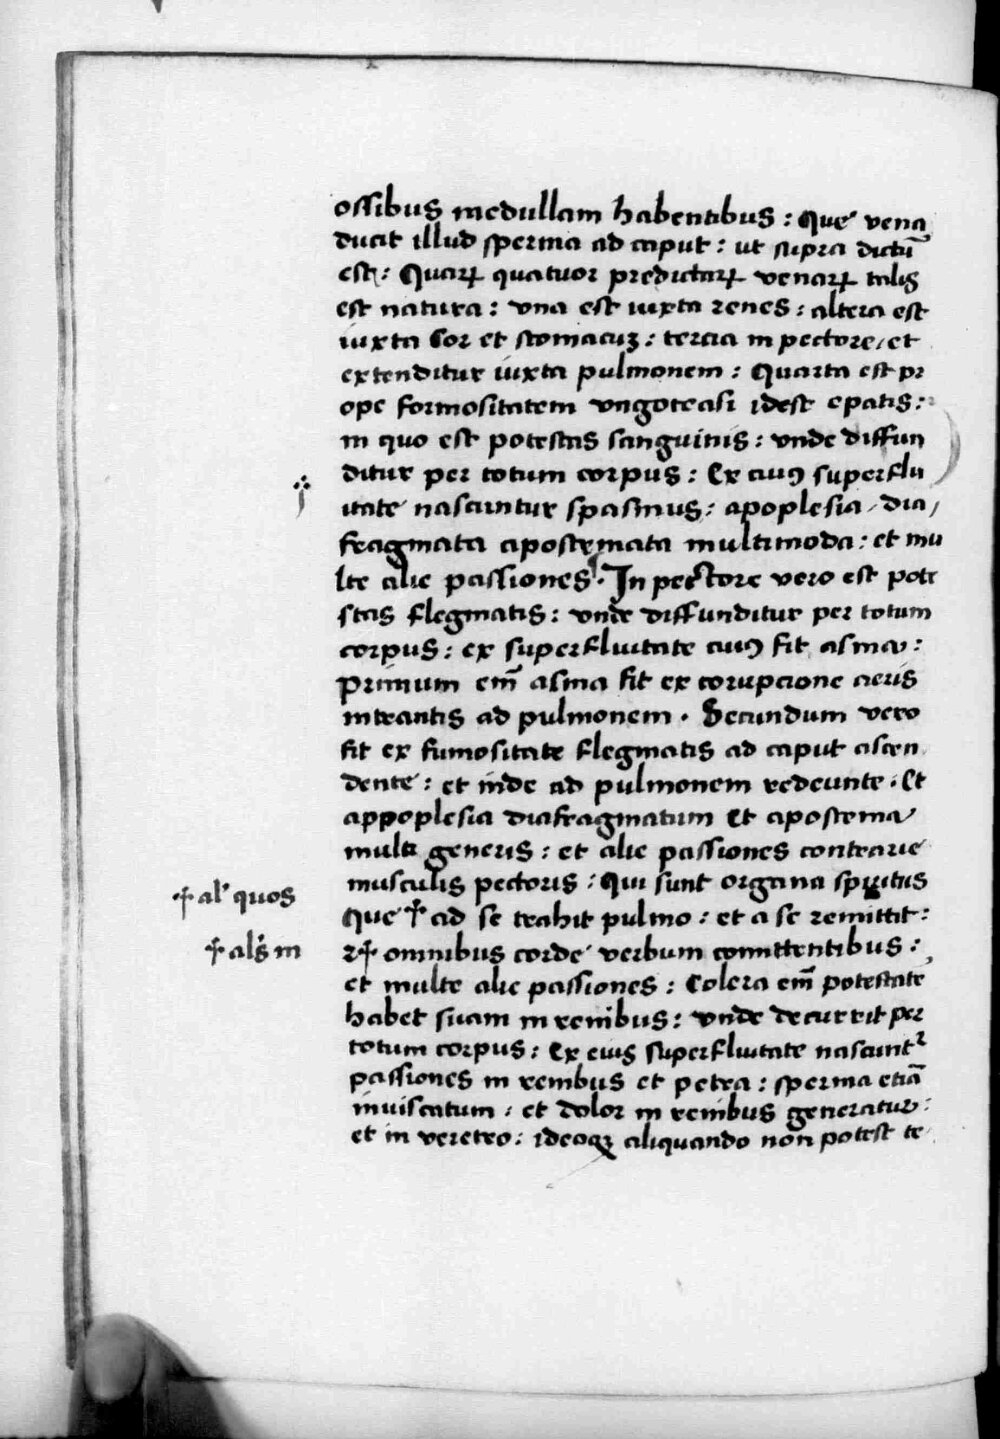 ossibus medullam habentibus : Que vena
ducit illud sperma ad caput : ut supra dictū
est : Quaꝝ quatuor predictaꝝ venaꝝ talis
est natura : vna est iuxta renes : altera est
iuxta Cor et stomacuꝫ : tercia in pectore / et
extenditur iuxta pulmonem : Quarta est pr
ope formositatem vngoteasi idest epatis :
in quo est potestas sanguinis : vnde diffun
ditur per totum corpus : Ex cuiꝰ superflu
itate nascuntur spasmus : apoplesia / dia /
fragmata apostemata multimoda : et mu
lte alie passiones · In pectore vero est pote
stas flegmatis : vnde diffunditur per totum
corpus : ex superfluitate cuiꝰ fit asma :
Primum em̄ asma fit ex corupcione aeris
intrantis ad pulmonem · Secundum vero
fit ex fumositate flegmatis ad caput ascen
dente : et inde ad pulmonem redeunte · Et
appoplesia diafragmatum Et apostoma
multi generis : et alie passiones contrarie
musculis pectoris : Qui sunt organa spiritus
⸓ al' quos
Que ⸓ ad se trahit pulmo : et a se remittit :
⸓ als in
⁊ ⸓ omnibus corde verbum comittentibus :
et multe alie passiones : Colera em̄ potestate
habet suam in renibus : vnde decurrit per
totum corpus : Ex eius superfluitate nascunt᷑
passiones in renibus et petra : sperma etiā
inuiscatum : et dolor in renibus generatur :
et in veretro : ideoqꝫ aliquando non potest te